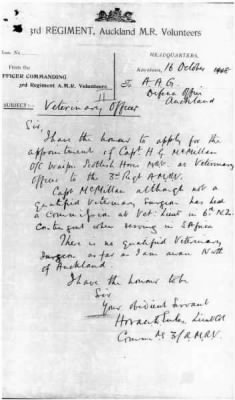 3RD REGIMENT, Auckland M.R. Volunteers
HEADQUARTERS,
16 October 1908
From the
OFFICER COMMANDING
3rd Regiment A.M.R. Volunteers
To A A G
Defence Office
Auckland
SUBJECT:- Veterinary Officer
Sir,
I have the honour to apply for the
appointment of Capt H G McMillan
O/C Waipu Scottish Horse MRV as Veterinary
Officer to the 3rd Regt AMRV.
Capt McMillan although not a
qualified Veterinary Surgeon has held
a Commission as Vet. Lieut in 6th N.Z.
Contingent when serving in S Africa
There is no qualified Veterinary
Surgeon as far as I am aware North
of Auckland.
I have the honour to be
Sir
Your obedient Servant
Lieut Col
Commdg 3/AMRV.